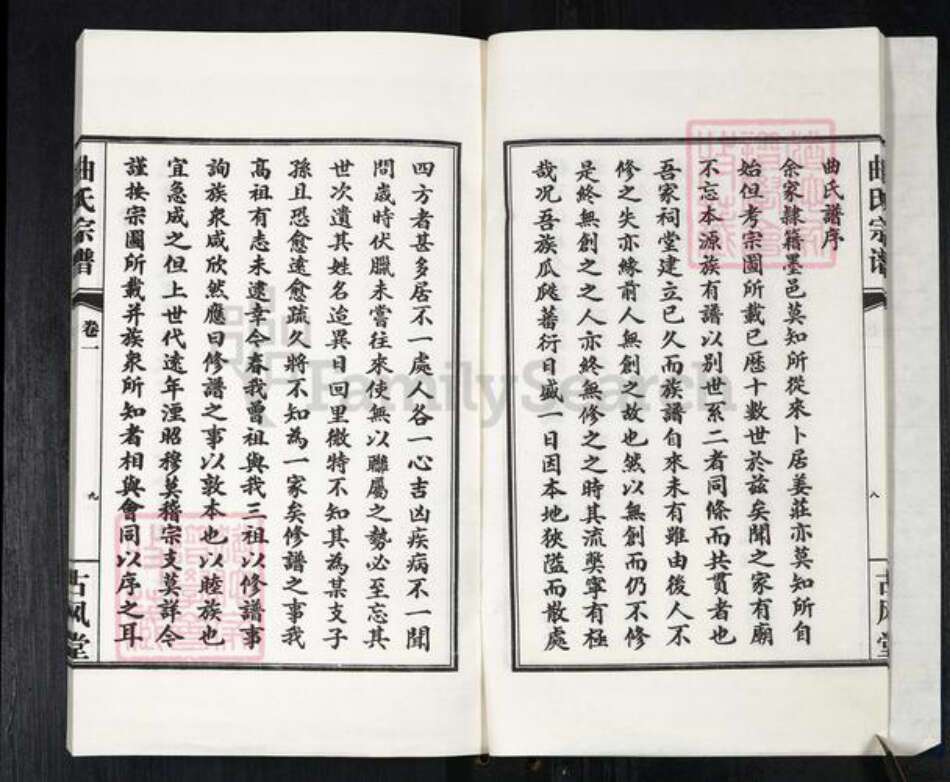 曲氏宗谱
八
古风堂
曲氏譜序
余家隸籍墨邑莫知所從來卜居姜莊亦莫知所自
始但考宗圖所載已歷十數世於茲矣聞之家有廟
不忘本源族有譜以別世系二者同條而共貫者也
吾家祠堂建立已久而族譜自來未有雖由後人不
修之失亦緣前人無創之故也然以無創而仍不修
是終無創之之人亦終無修之之時其流獘寧有極
哉况吾族瓜瓞蕃衍日盛一日因本地狹隘而散處
四方者甚多居不一處人各一心吉凶疾病不一聞
問歲時伏臘未嘗往來使無以聯屬之勢必至忘其
世次遺其姓名迨異日回里微特不知其為某支子
孫且恐愈遠愈疏久將不知為一家矣修譜之事我
高祖有志未逮幸今春我曾祖與我三祖以修譜事
詢族衆咸欣然應曰修譜之事以敦本也以睦族也
宜急成之但上世代遠年湮昭穆莫稽宗支莫詳今
謹按宗圖所載并族衆所知者相與會同以序之耳
曲氏宗譜
卷一
九
古风堂
FamilySearch